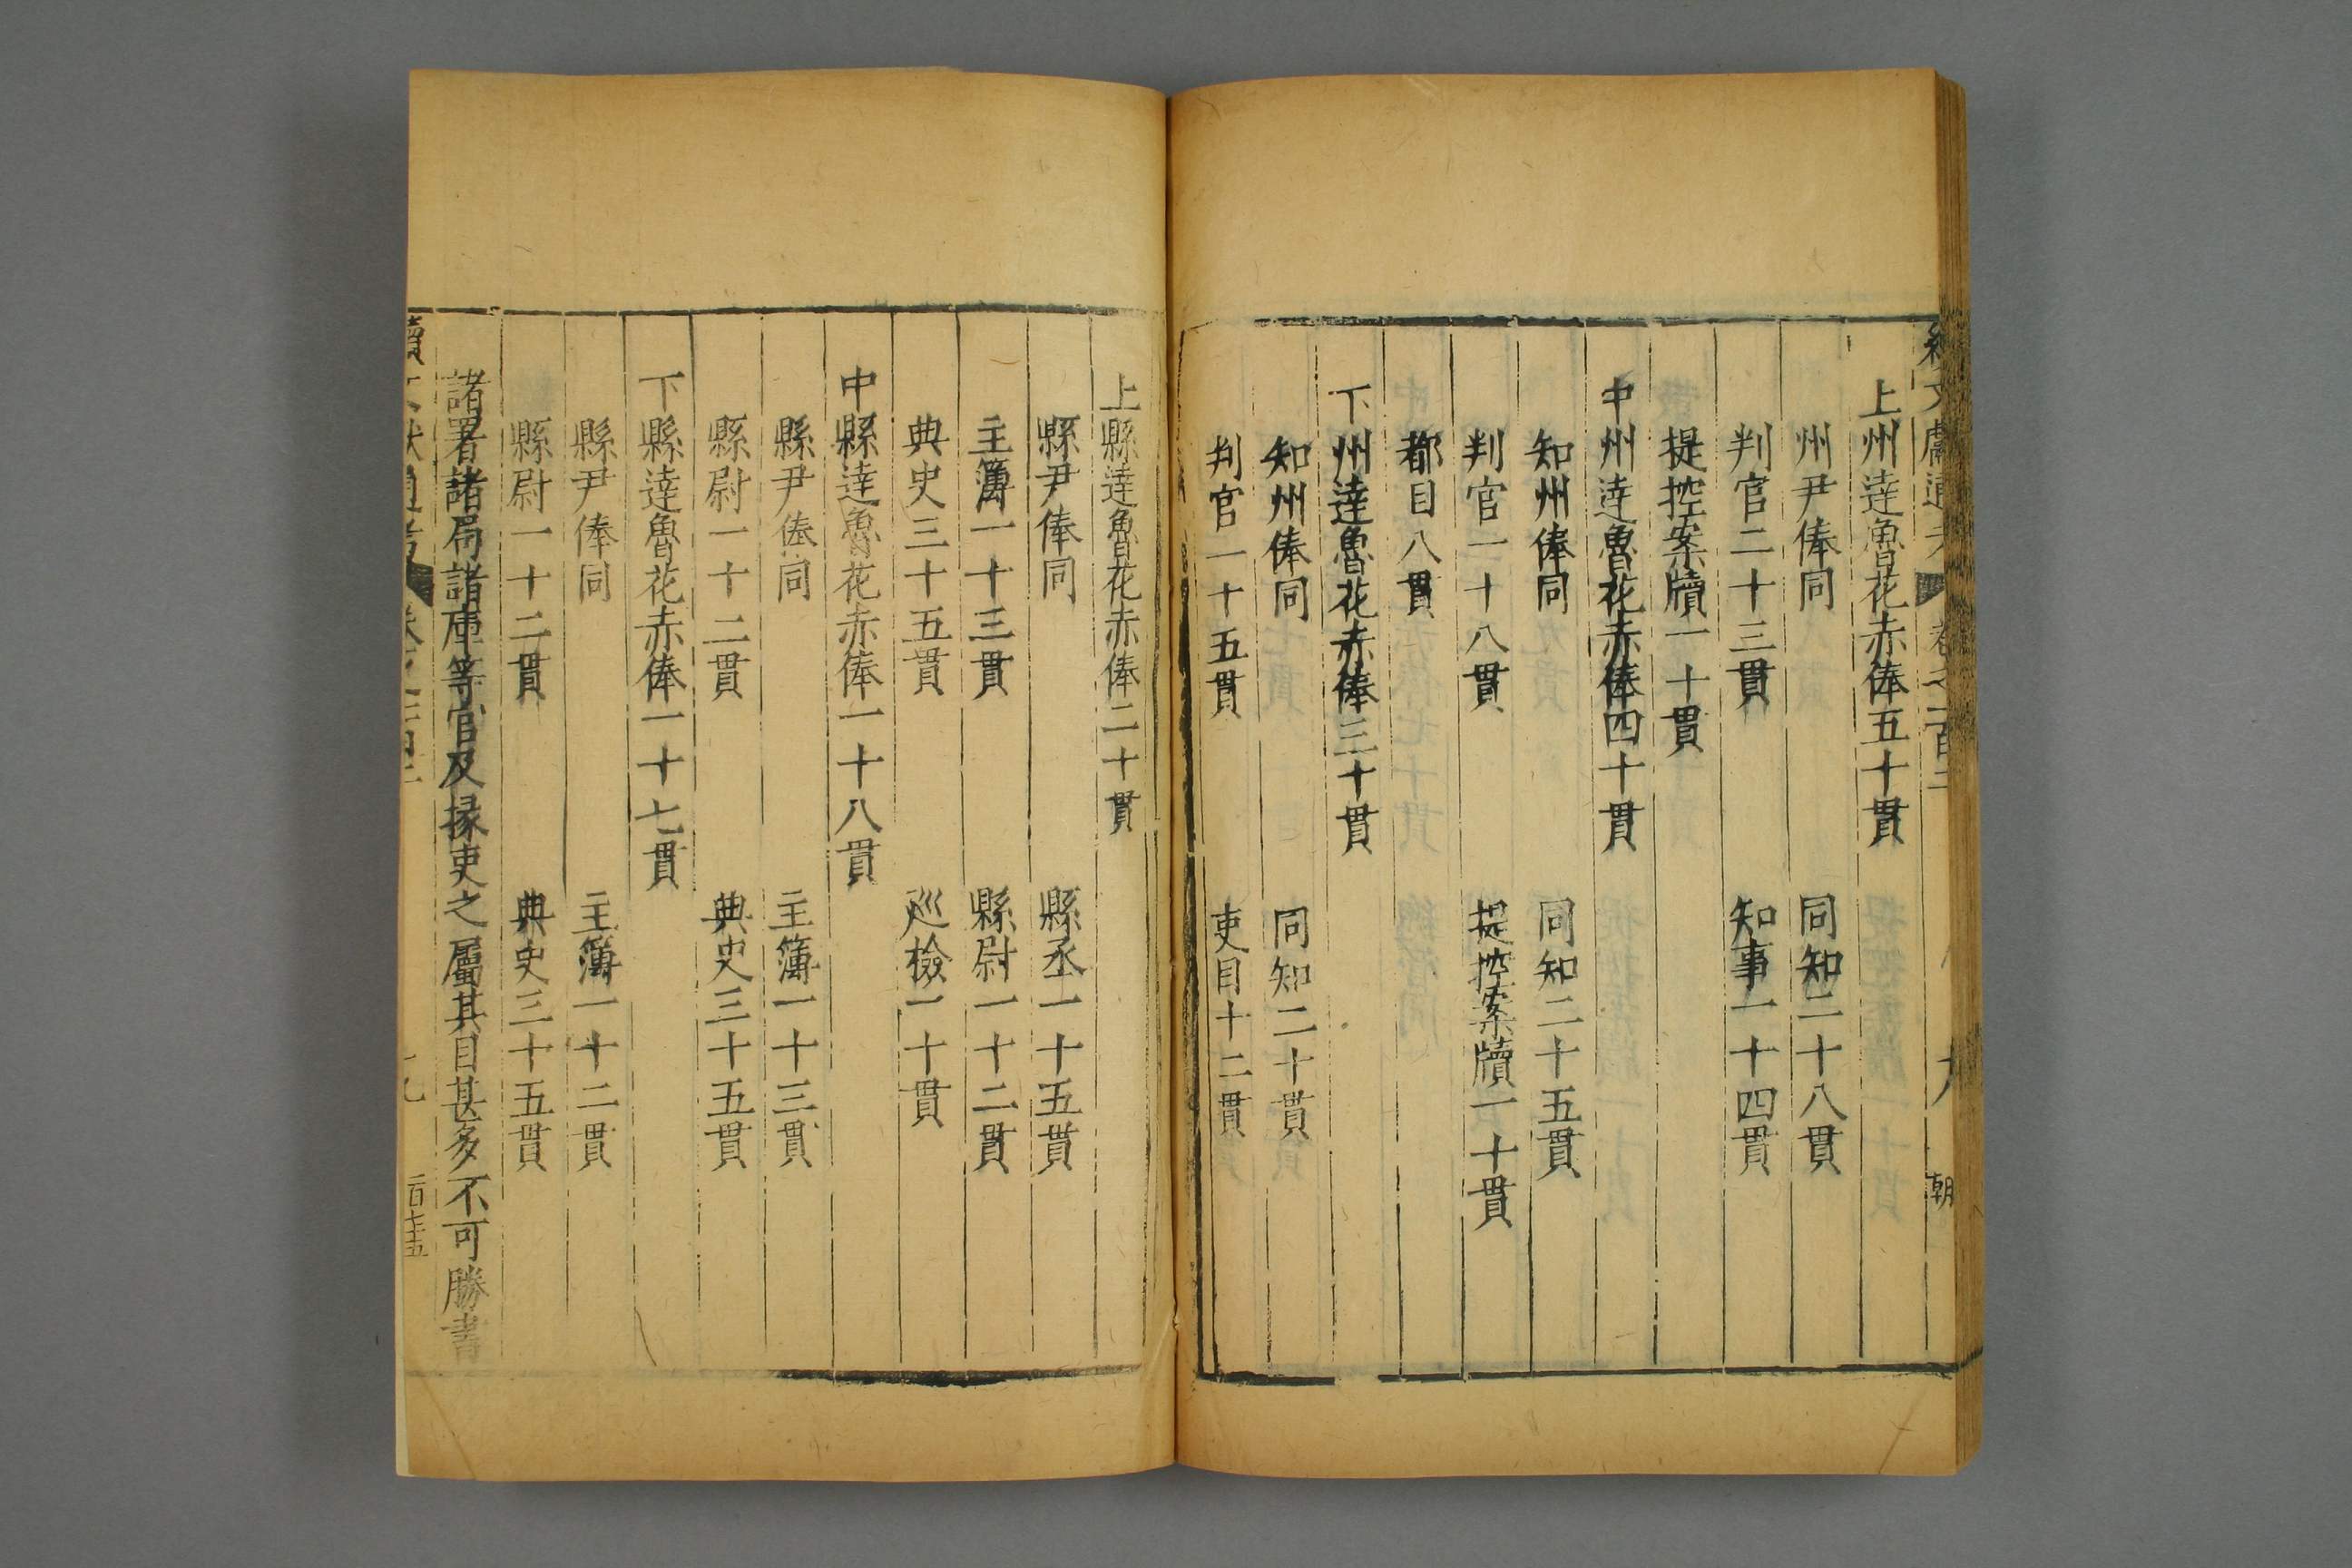 上州達魯花赤俸五十貫
州尹俸同　同知二十八貫
判官二十三貫　知事一十四貫
提控案牘一十貫
中州達魯花赤俸四十貫
知州俸同　同知二十五貫
判官一十八貫　提控案牘一十貫
都目八貫
下州達魯花赤俸三十貫
知州俸同　同知二十貫
判官一十五貫　吏目十二貫
上縣達魯花赤俸二十貫
縣尹俸同　縣丞一十五貫
主簿一十三貫　縣尉一十二貫
典史三十五貫　廵檢一十貫
中縣達魯花赤俸一十八貫
縣尹俸同　主簿一十三貫
縣尉一十二貫　典史三十五貫
下縣達魯花赤俸一十七貫
縣尹俸同　主簿一十二貫
縣尉一十二貫　典史三十五貫
諸署諸局諸庫等官及掾吏之屬其目甚多不可勝書